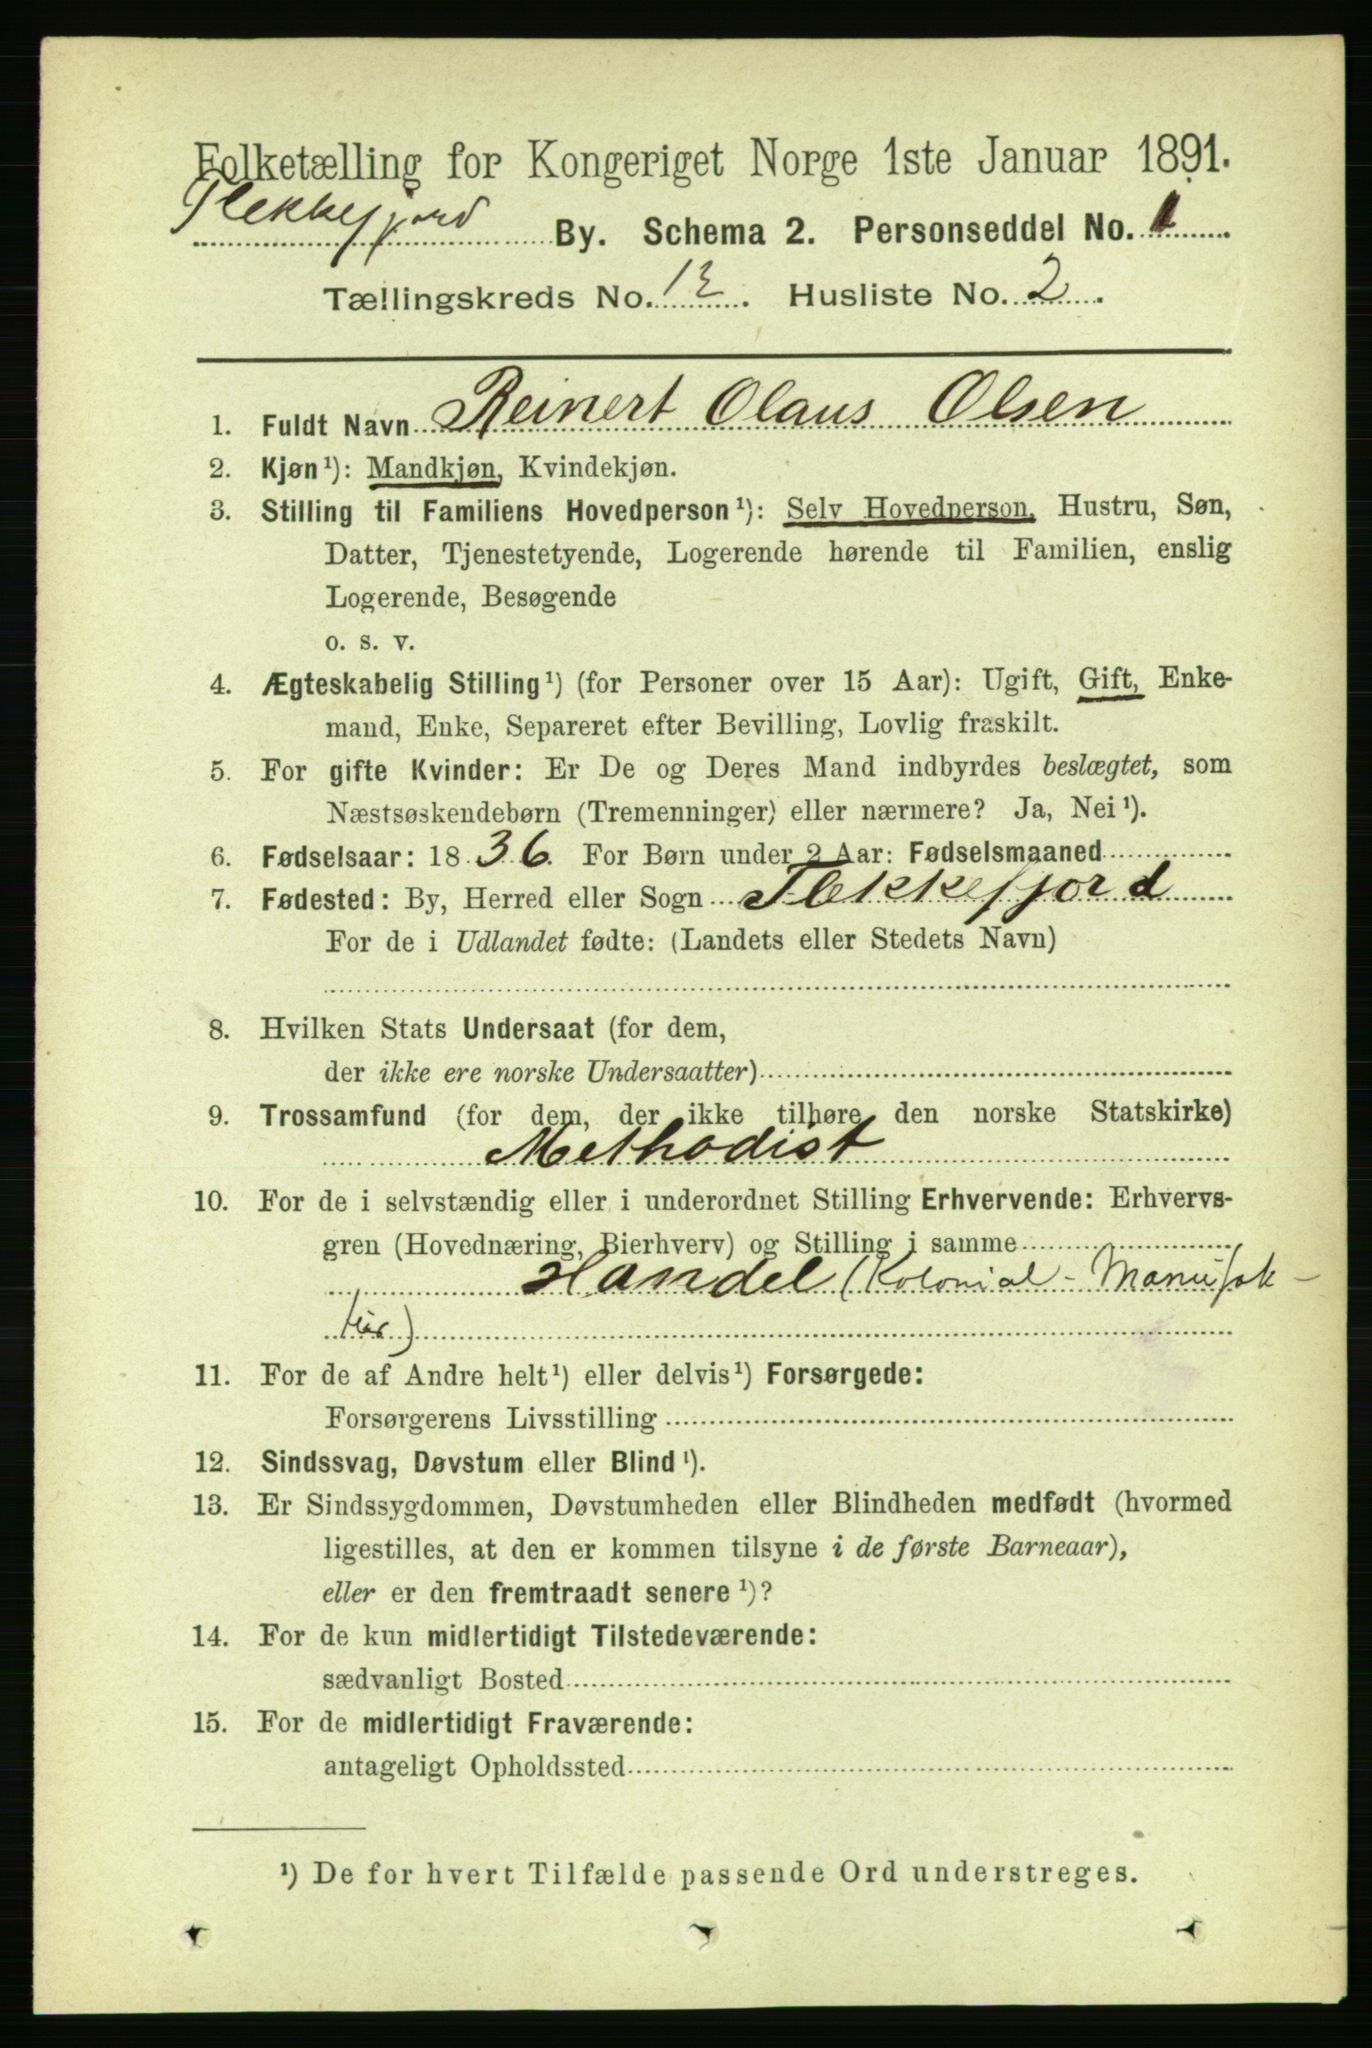 Folketælling for Kongeriget Norge 1ste Januar 1891.
Flekkefjord By. Schema 2. Personseddel No. 1
Tællingskreds No. 12. Husliste No. 2.
1. Fuldt Navn Reinert Olaus Olsen
2. Kjøn¹): Mandkjøn, Kvindekjøn.
3. Stilling til Familiens Hovedperson¹): Selv Hovedperson, Hustru, Søn,
Datter, Tjenestetyende, Logerende hørende til Familien, enslig
Logerende, Besøgende
o. s. v.
4. Ægteskabelig Stilling¹) (for Personer over 15 Aar): Ugift, Gift, Enke-
mand, Enke, Separeret efter Bevilling, Lovlig fraskilt.
5. For gifte Kvinder: Er De og Deres Mand indbyrdes beslægtet, som
Næstsøskendebørn (Tremenninger) eller nærmere? Ja, Nei¹).
6. Fødselsaar: 1836. For Børn under 2 Aar: Fødselsmaaned
7. Fødested: By, Herred eller Sogn Flekkefjord
For de i Udlandet fødte: (Landets eller Stedets Navn)
8. Hvilken Stats Undersaat (for dem,
der ikke ere norske Undersaatter)
9. Trossamfund (for dem, der ikke tilhøre den norske Statskirke)
Methodist
10. For de i selvstændig eller i underordnet Stilling Erhvervende: Erhvervs-
gren (Hovednæring, Bierhverv) og Stilling i samme
Handel (Kolonial - Manufak-
tur)
11. For de af Andre helt¹) eller delvis¹) Forsørgede:
Forsørgerens Livsstilling
12. Sindssvag, Døvstum eller Blind¹).
13. Er Sindssygdommen, Døvstumheden eller Blindheden medfødt (hvormed
ligestilles, at den er kommen tilsyne i de første Barneaar),
eller er den fremtraadt senere¹)?
14. For de kun midlertidigt Tilstedeværende:
sædvanligt Bosted
15. For de midlertidigt Fraværende:
antageligt Opholdssted
¹) De for hvert Tilfælde passende Ord understreges.